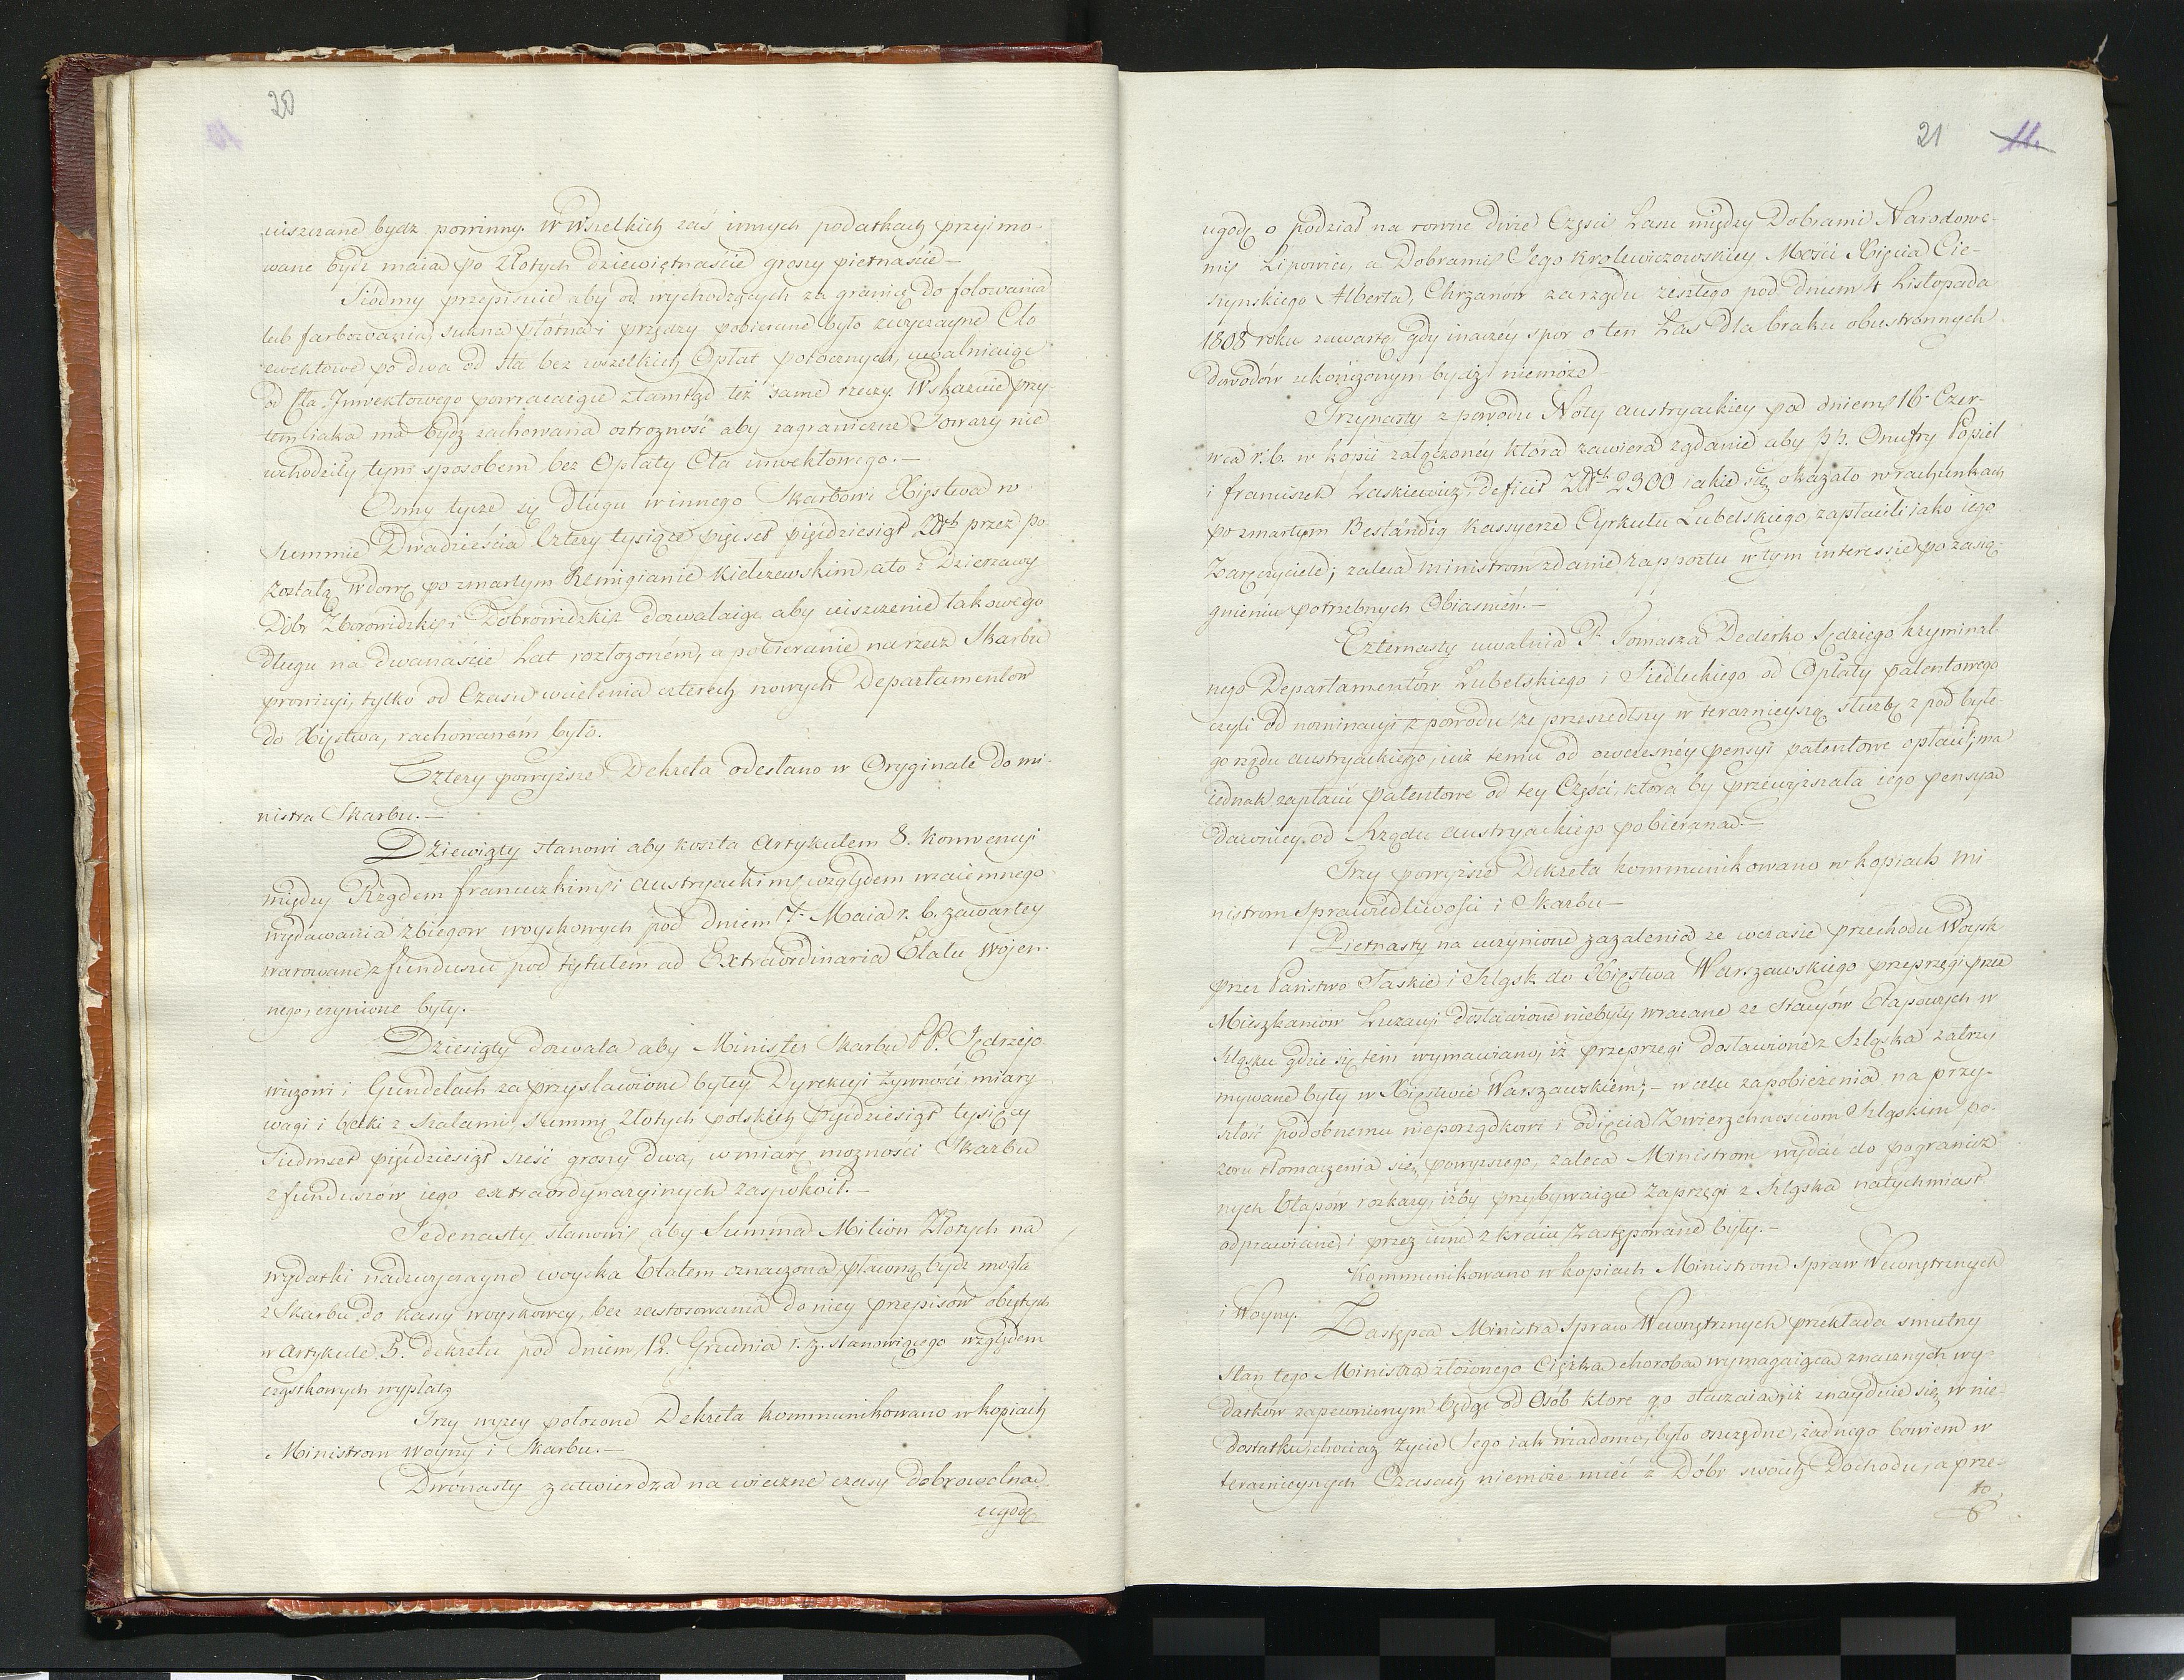 20
uiszczane bydz powinny. W Wszelkich zaś innych podatkach przyimo-
wane bydz maia po Złotych dziewiętnaście groszy pietnaście —
Siódmy przepisuie aby od wychodzących za granicę do folowania
lub farbowania, sukna płótna i przędzy pobierane było zwyczayne Cło
ewektowe po dwa od sta bez wszelkich Opłat pobocznych, uwalniaiąc
od Cła Inwektowego powracaiące ztamtąd też same rzeczy. Wskazuie przy-
tem iaka ma bydz zachowana ostrozność aby zagraniczne Towary nie
wchodziły tym sposobem bez Opłaty Cła inwektowego. —
Osmy tycze się Długu winnego Skarbowi Xięstwa w
Summie Dwadzieścia Cztery tysiące pięćset pięćdziesiąt ZłRh przez po-
zostałą wdowę po zmarłym Remigianie Kiełczewskim, a to z Dzierzawy
Dóbr Zborowidzkich i Dobrowidzkich dozwalaiąc aby uiszczenie takowego
długu na dwanaście Lat rozłożoném, a pobieranie na rzecz Skarbu
prowizyi, tylko od Czasu wcielenia czterech nowych Departamentów
do Xięstwa, rachowaném było.
Cztery powyższe Dekreta odesłano w Oryginale do Mi-
nistra Skarbu. —
Dziewiąty stanowi aby koszta Artykułem 8. Konwencyi
między Rządem francuzkim i austryackim względem wzaiemnego
wydawania zbiegów woyskowych pod dniem 7. Maia r. b. zawartey
warowane z funduszu pod tytułem ad Extraordinaria Etatu Woien-
nego, czynione były.
Dziesiąty dozwala aby Minister Skarbu PP. Jędrzejo-
wiczowi i Gundelach za przystawione byłey Dyrekcyi żywności miary
wagi i belki z Szalami Summę złotych polskich pięćdziesiąt tysięcy
Siedmset pięćdziesiąt sześć groszy dwa, w miarę mozności Skarbu
z funduszów iego extraordynaryinych zaspokoił. —
Jedenasty stanowi aby Summa Milion Złotych na
wydatki nadzwyczayne woyska Etatem oznaczona, płacona bydz mogła
z Skarbu do kassy woyskowey, bez zastosowania do niey przepisów obiętych
w Artykule 3. dekretu pod dniem 12. Grudnia r. z. stanowiącego względem
cząstkowych wypłat.
Trzy wyzey położone Dekreta kommunikowano w kopiach
Ministrom Woyny i Skarbu. —
Dwónasty zatwierdza na wieczne czasy dobrowolną
ugodę
21 11.
ugodę o podział na rowne dwie Części Lasu między Dobrami Narodowe-
mi Lipowiec, a Dobrami Jego Krolewiczowskiey Mości Xięcia Cie-
szynskiego Alberta, Chrzanów zarządu zeszłego pod dniem 4 Listopada
1808 roku zawartą, gdy inaczéy spor o ten Las dla braku obustronnych
dowodów ukończonym bydź niemoże —
Trzynasty z powodu Noty austryackiey pod dniem 16. Czer-
wca r. b. w kopii załączonéy która zawiera żądanie aby pp. Onufry Popiel
i franciszek Laskiewicz, deficit ZłRh 2300 iakie się okazało w rachunkach
po zmarłym Beständig Kassyerze Cyrkułu Lubelskiego, zapłacili iako iego
Zaręczyciele; zaleca ministrom zdanie rapportu w tym interessie po zasią-
gnieniu potrzebnych Obiasnień. —
Czternasty uwalnia P. Tomasza Dederko Sędziego kryminal-
nego Departamentów Lubelskiego i Siedleckiego od Opłaty patentowego
czyli od nominacyi z powodu że przeszedłszy w teraznieyszą służbę z pod byłe-
go rządu austryackiego, iuż temu od owczesnéy pensyi patentowe opłacił; ma
iednak zapłacić patentowe od tey Części, która by przewyższała iego pensyą
dawniey od Rządu austryackiego pobieraną. —
Trzy powyższe Dekreta kommunikowano w kopiach Mi-
nistrom Sprawiedliwości i Skarbu —
Pietnasty na uczynione zazalenia ze wczasie przechodu Woysk
przez Państwo Saskie i Szląsk do Xięstwa Warszawskiego przeprzęgi przez
Mieszkańców Luzacyi dostawione niebyły wracane ze Stacyów Etapowych w
Szląsku gdzie się tem wymawiano, iż przeprzęgi dostawione z Szląska zatrzy-
mywane były w Xięstwie Warszawskiém; — w celu zapobieżenia na przy-
szłość podobnemu nieporządkowi i odięcia Zwierzchnościom Szląskim po-
zoru tłomaczenia się powyższego, zaleca Ministrom wydać do pogranicz-
nych Etapów rozkazy, iżby przybywaiące Zaprzęgi z Szląska natychmiast
odprawiane, i przez inne z kraiu zastępowane były. —
Kommunikowano w kopiach Ministrom Spraw Wewnętrznych
i Woyny.
Zastępca Ministra Spraw Wewnętrznych przekłada smutny
stan tego Ministra złożonego Ciężką chorobą wymagaiącą znacznych wy-
datków zapewnionym będąc od Osob ktore go otaczaią, iż znayduie się w nie-
dostatku, chociaz życie Jego iak wiadomo, było oszczędne, żadnego bowiem w
teraznieyszych Czasach niemoże mieć z Dóbr swoich Dochodu, a prze-
to